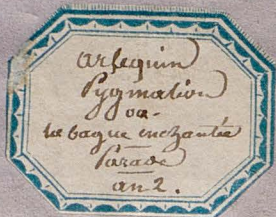 Arlequin
Pygmalion
ou
la bague enchantée
Parade
an 2.